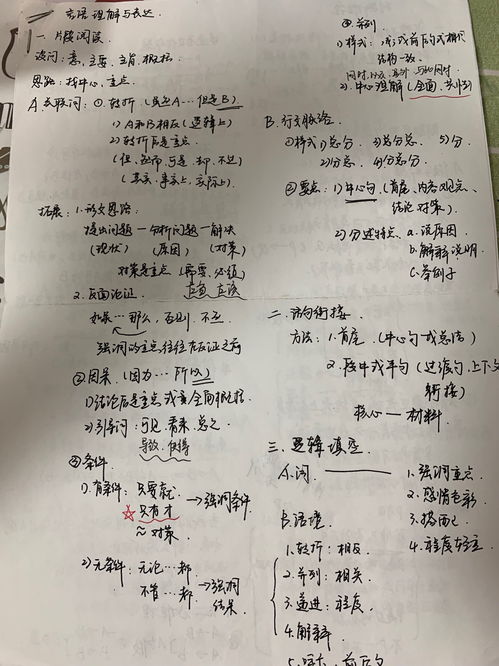 言语理解与表达
一、片段阅读
提问：意、主要、主旨、概括
思路：找中心、重点
A.关联词：①转折（虽然A…但是B）
1）A和B相反（逻辑上）
2）转折后是重点
（但、然而、可是、却、不过
（其实、事实上、实际上）
拓展：1.行文思路：
提出问题—分析问题—解决
（现状）（原因）（对策）
对策是重点（需要、必须）
应鱼 应该
2.反面论证
如果…那么，否则，不然
强调的重点往往在反证之前
②因果（因为…所以）
1)结论后是重点或章全面概括
2)引导词：可见、看来、总之
导致、使得
③条件
1).有条件：只要就
☆只有才 →强调条件
≈对策
2)无条件：无论…都
不管…都 →强调结果
④并列
1)样式：形式或前后句式相似
结构一致、
同时、以及、另外
2).中心理解（全面、共性）
B.行文脉络
①样式1)总分 3)总分总、5)分
2)分总、4)分总分
②要点：1)中心句（首尾、内容观点、
结论对策）
2)分述特点、a.说原因
b.解释说明
c.举例子
二、语句衔接
方法：1.首尾（中心句或总结）
2.段中或半句（过渡句，上下文
衔接）
核心—材料
三、逻辑填空
A.词 1.强调重点
2.感情色彩
3.搭配
4.程度轻重
B.语境
1.转折：相反
2.并列：相关
3.递进：程度
4.解释
5.